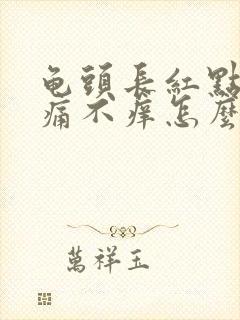 龟頭長紅點
痛不痒怎麼
萬祥玉